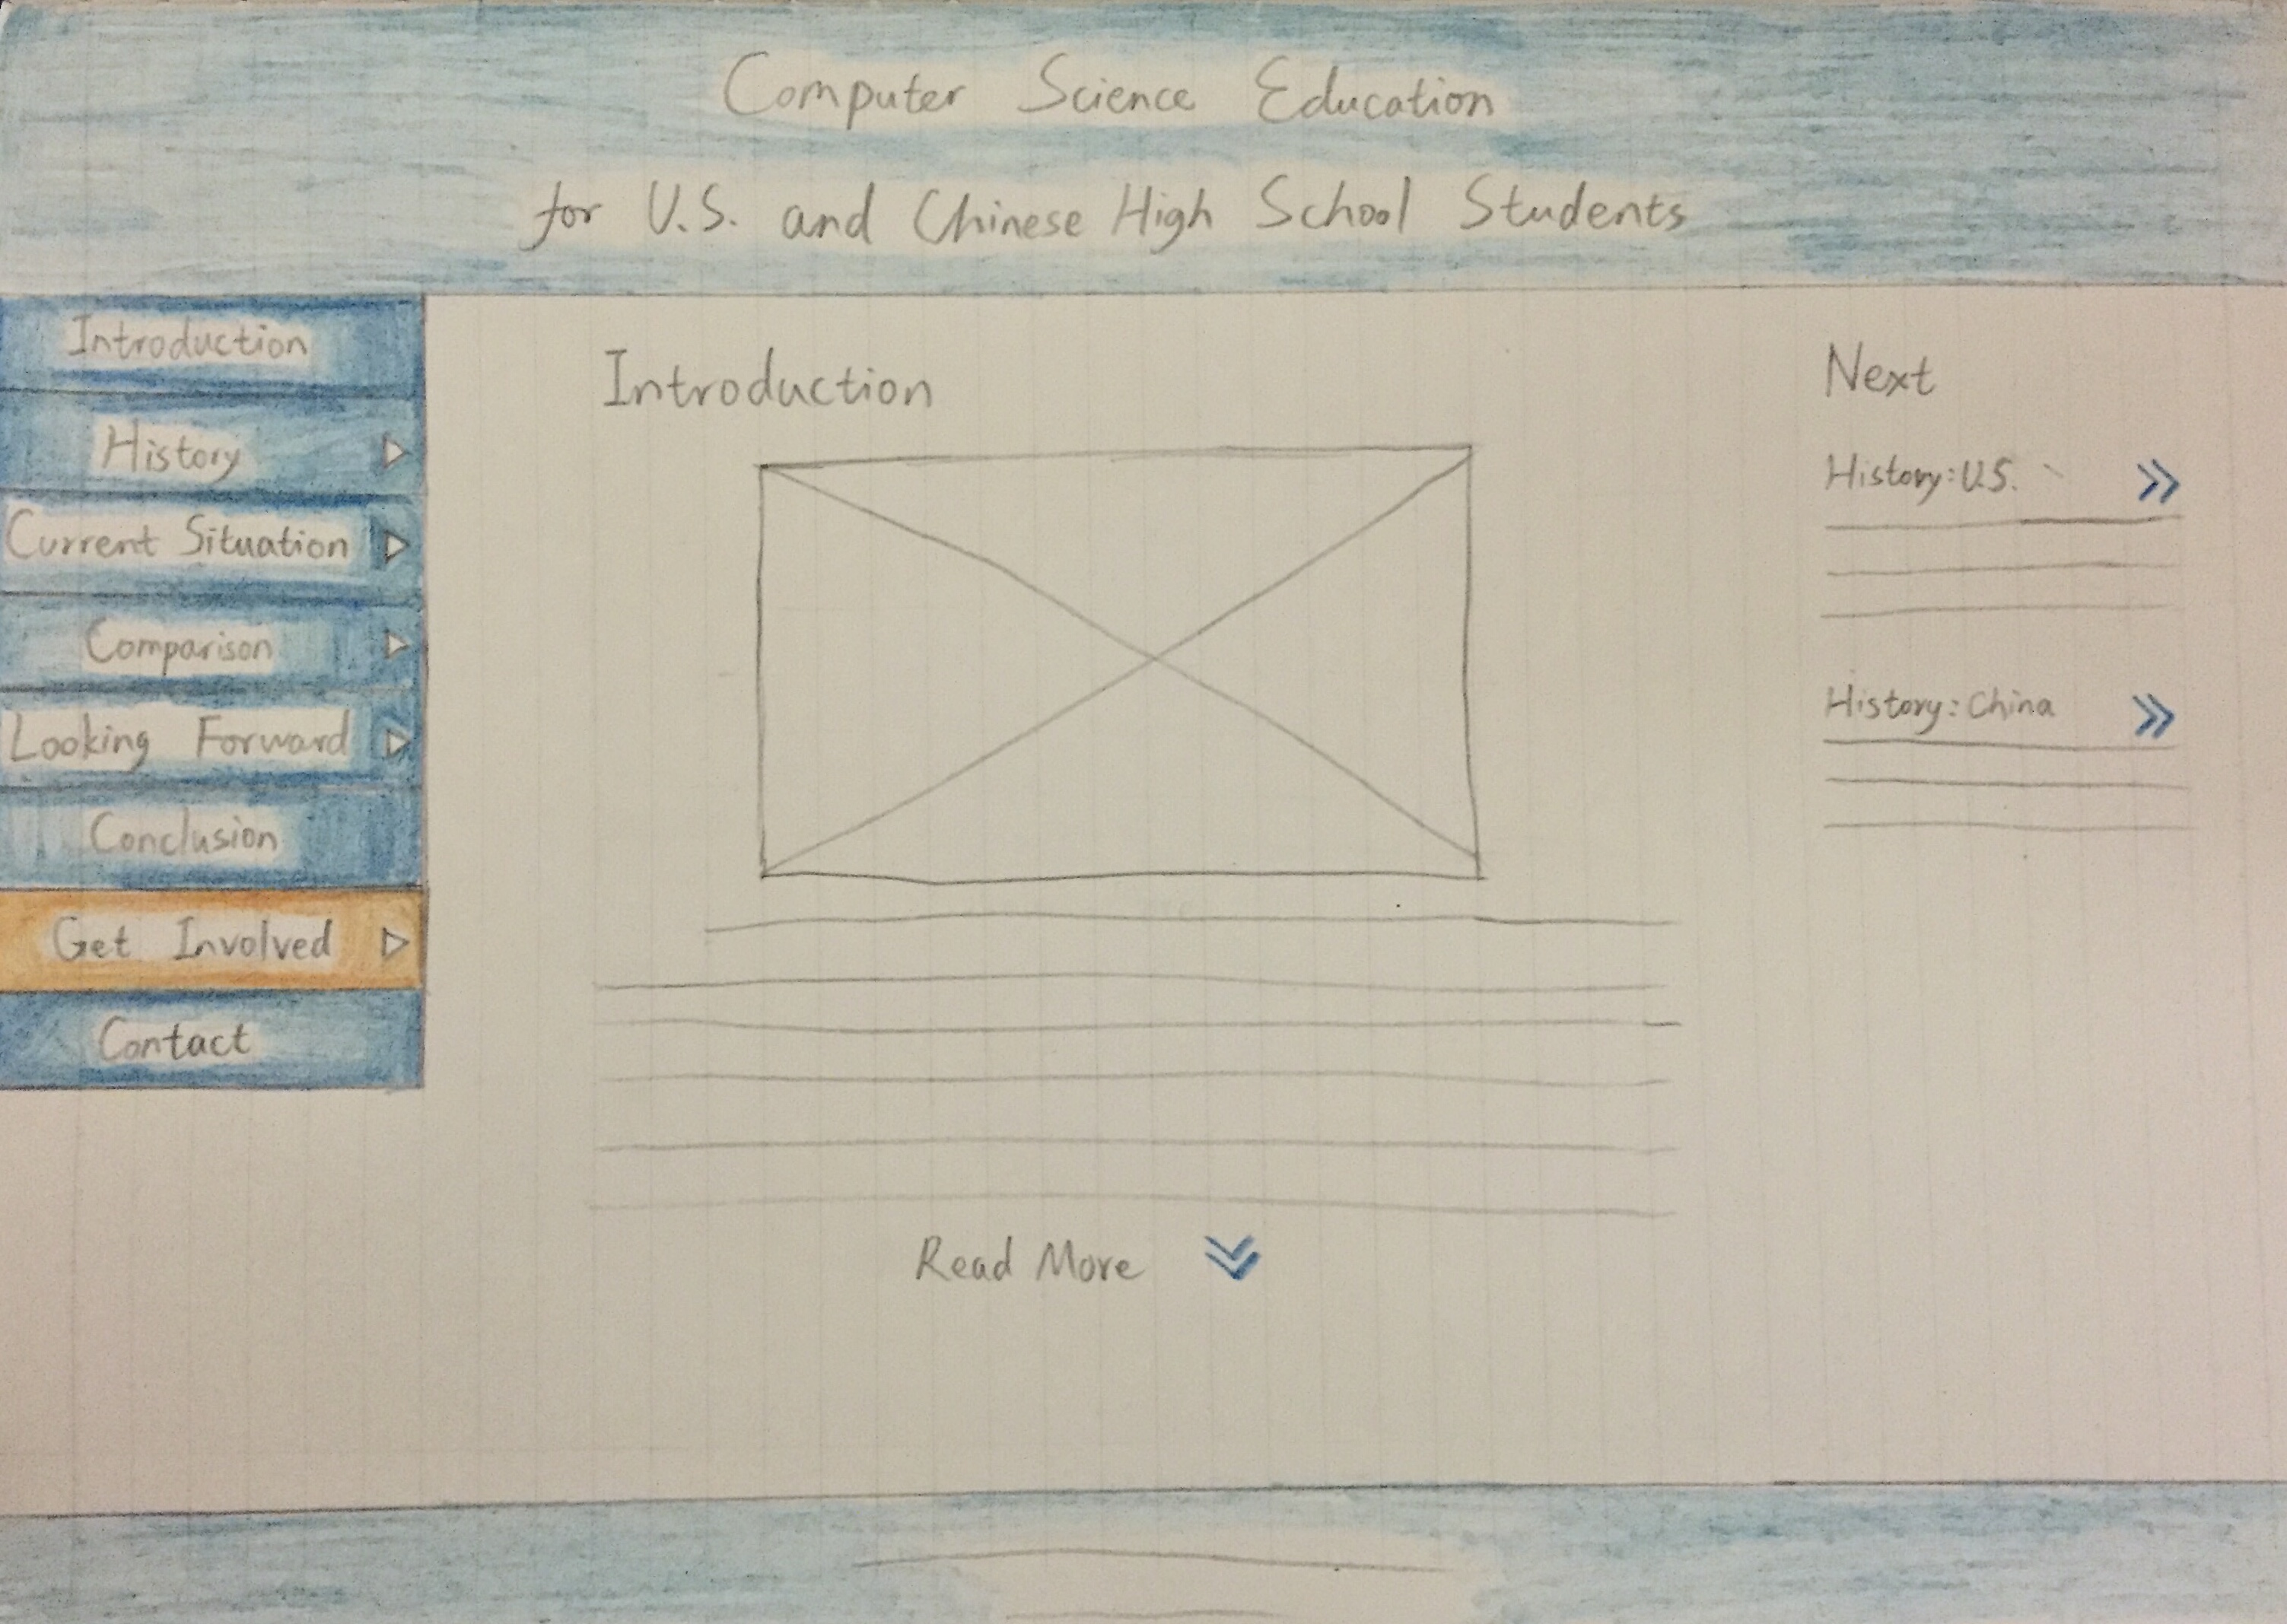 Computer Science Education
for U.S. and Chinese High School Students
Introduction
History
Current Situation
Comparison
Looking Forward
Conclusion
Get Involved
Contact
Introduction
Read More
Next
History: U.S.
History: China